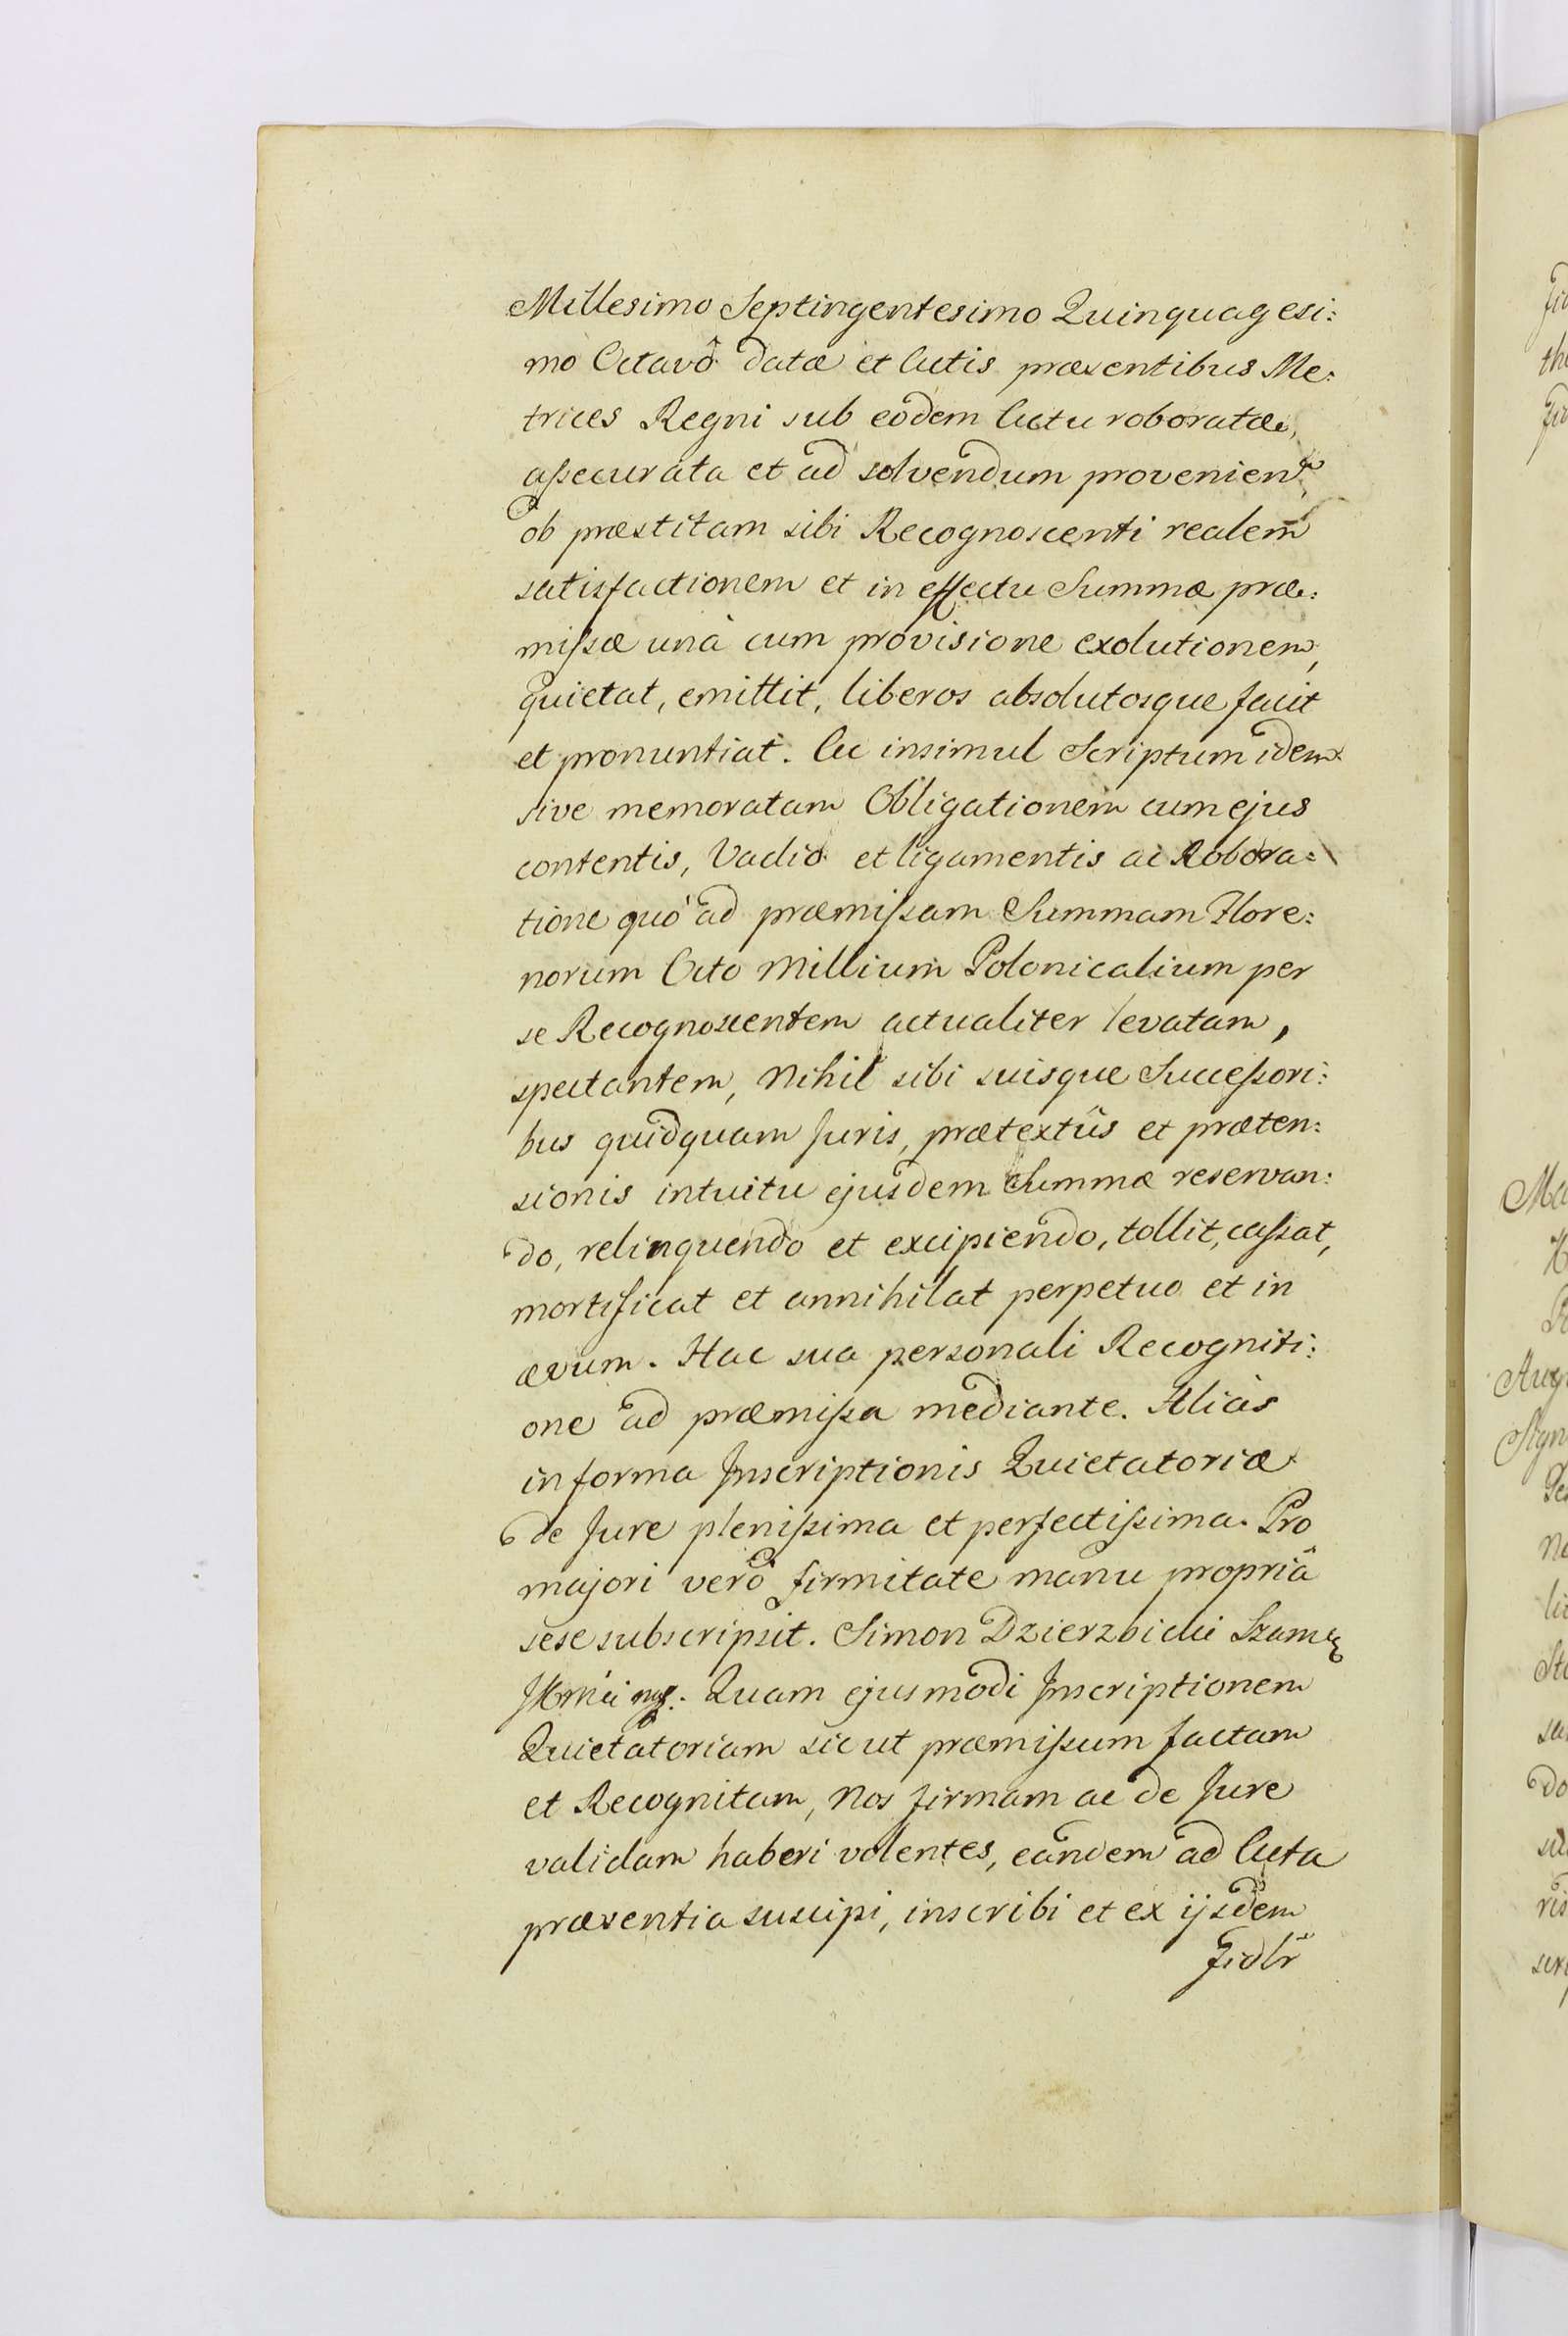 Millesimo Septingentesimo Quinquagesi:
mo Octavô datæ et Actis præsentibus Me:
trices Regni sub eodem Actu roboratæ,
assecurata et ad solvendum provenien
ob præstitam sibi Recognoscenti realem
satisfactionem et in effectu Summæ præ:
missæ unà cum provisione exolutionem,
quietat, emittit, liberos absolutosque facit
et pronuntiat. Ac insimul Scriptum idem
sive memoratam Obligationem cum ejus
contentis, Vadio et ligamentis ac Robora=
tione quò ad præmissam Summam Flore:
norum Octo Millium Polonicalium per
se Recognoscentem actualiter levatam,
spectantem, Nihil sibi suisque Successori:
bus quidquam Juris, prætextûs et præten:
sionis intuitu ejusdem Summæ reservan:
do, relinquendo et excipiendo, tollit, cassat,
mortificat et annihilat perpetuo et in
ævum. Hac sua personali Recogniti:
one ad præmissa mediante. Aliàs
in forma Inscriptionis Quietatoriæ
de Jure plenissima et perfectissima. Pro
majori verò firmitate manu propriâ
sese subscripsit. Simon Dzierzbicki
Quam ejusmodi Inscriptionem
Quietatoriam sicut præmissum factam
et Recognitam, Nos firmam ac de Jure
validam haberi volentes, eandem ad Acta
præsentia suscipi, inscribi et ex ijsdem
fidlr